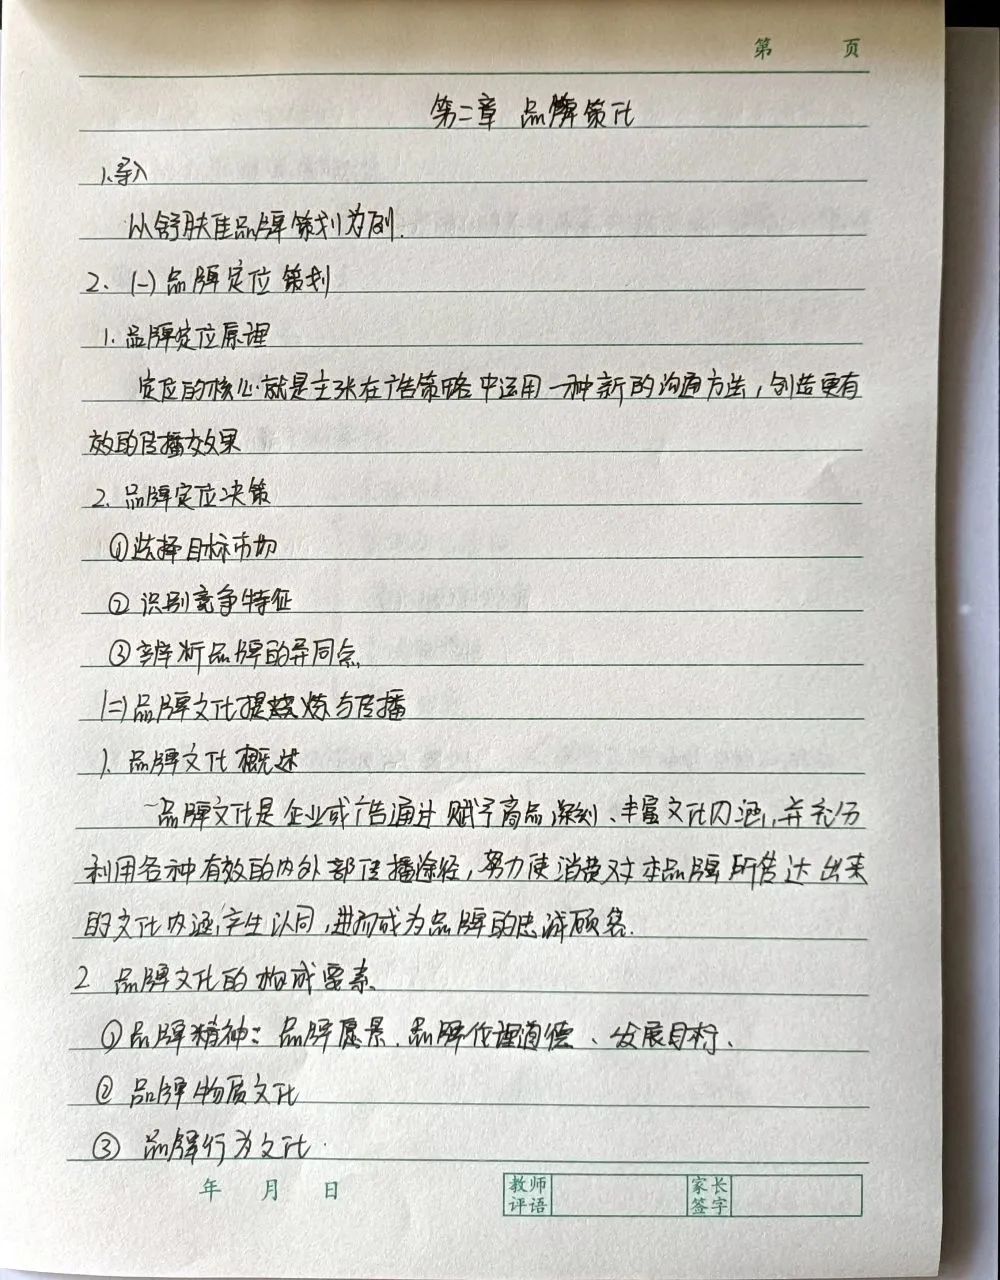 第 页
第二章 品牌策化
1.导入
以舒肤佳品牌策划为例.
2. (一) 品牌定位策划
1. 品牌定位原理
定位的核心就是主张在广告策略中运用一种新的沟通方法,创造更有
效的传播效果
2. 品牌定位决策
①选择目标市场
② 识别竞争特征
③ 辨析品牌的异同点
(二) 品牌文化提炼与传播
1. 品牌文化概述
品牌文化是企业或广告通过赋予商品深刻、丰富文化内涵,并充分
利用各种有效的内外部传播途径,努力使消费对本品牌所传达出来
的文化内涵产生认同,进而成为品牌的忠诚顾客.
2 品牌文化的构成要素
①品牌精神:品牌愿景、品牌伦理道德、发展目标、
② 品牌物质文化
③ 品牌行为文化.
年 月 日 教师评语 家长签字